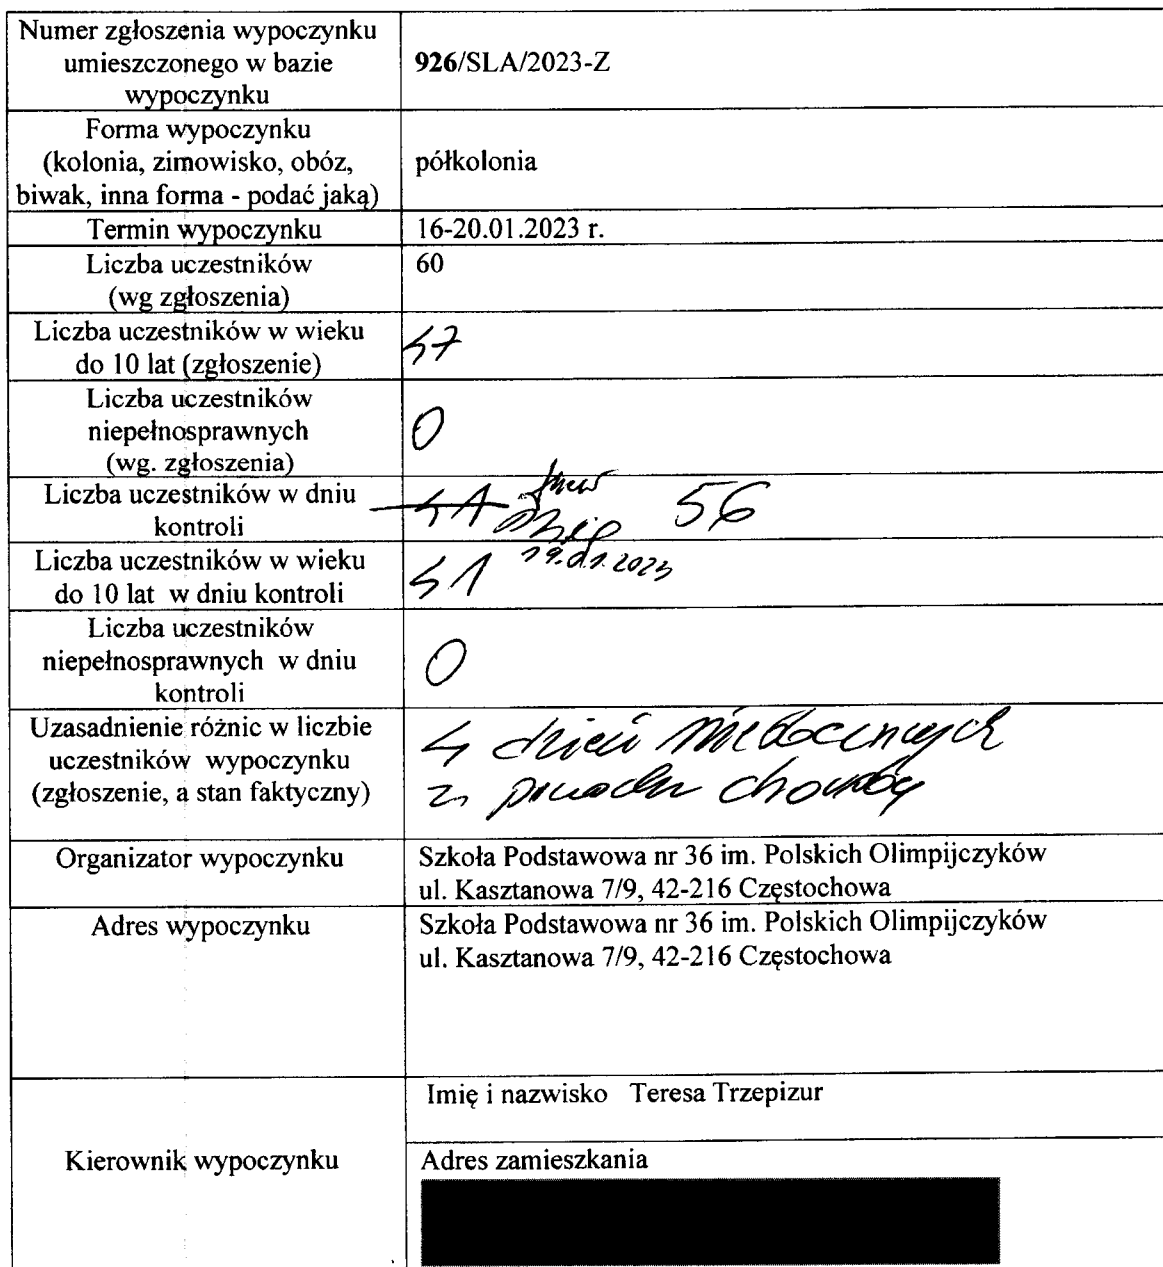 Numer zgłoszenia wypoczynku
umieszczonego w bazie
wypoczynku
926/SLA/2023-Z
Forma wypoczynku
(kolonia, zimowisko, obóz,
biwak, inna forma - podać jaką)
półkolonia
Termin wypoczynku
16-20.01.2023 r.
Liczba uczestników
(wg zgłoszenia)
60
Liczba uczestników w wieku
do 10 lat (zgłoszenie)
47
Liczba uczestników
niepełnosprawnych
(wg. zgłoszenia)
0
Liczba uczestników w dniu
kontroli
41 56
19.01.2023
Liczba uczestników w wieku
do 10 lat w dniu kontroli
41
Liczba uczestników
niepełnosprawnych w dniu
kontroli
0
Uzasadnienie różnic w liczbie
uczestników wypoczynku
(zgłoszenie, a stan faktyczny)
4 dzieci nieobecnych
z powodu choroby
Organizator wypoczynku
Szkoła Podstawowa nr 36 im. Polskich Olimpijczyków
ul. Kasztanowa 7/9, 42-216 Częstochowa
Adres wypoczynku
Szkoła Podstawowa nr 36 im. Polskich Olimpijczyków
ul. Kasztanowa 7/9, 42-216 Częstochowa
Kierownik wypoczynku
Imię i nazwisko Teresa Trzepizur
Adres zamieszkania